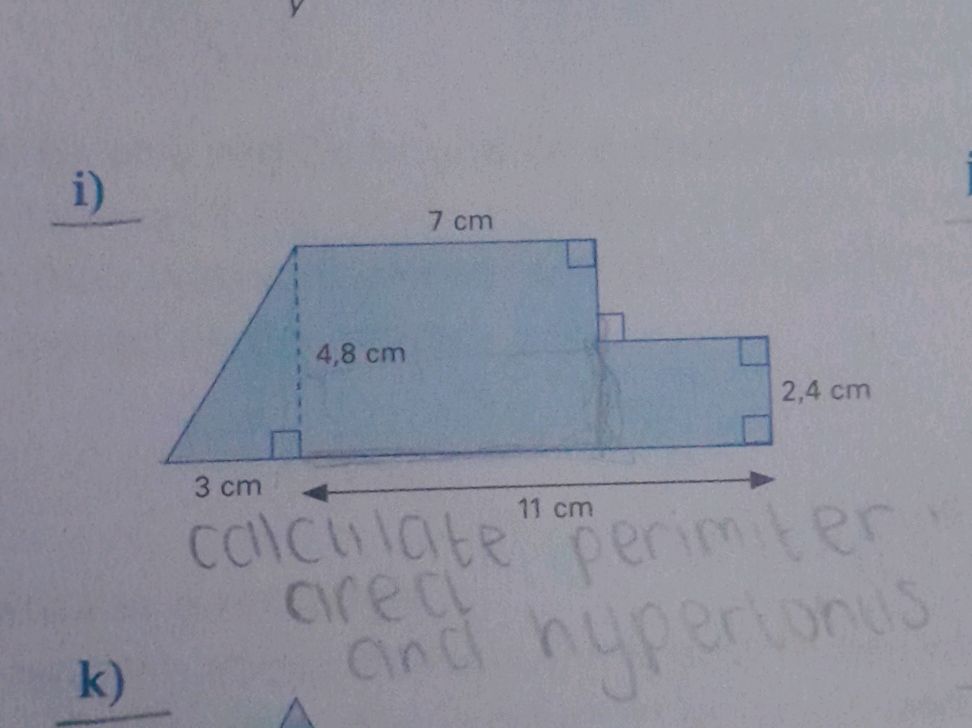 y
i)
7 cm
4,8 cm
2,4 cm
3 cm
11 cm
calculate perimiter
area
and hypertonus
k)